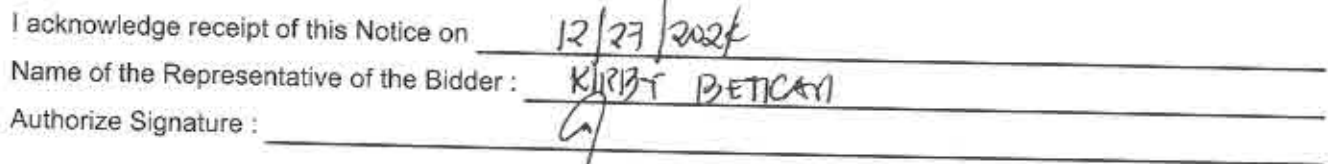 I acknowledge receipt of this Notice on 12/27/2024
Name of the Representative of the Bidder : KIRBY BETICAN
Authorize Signature :